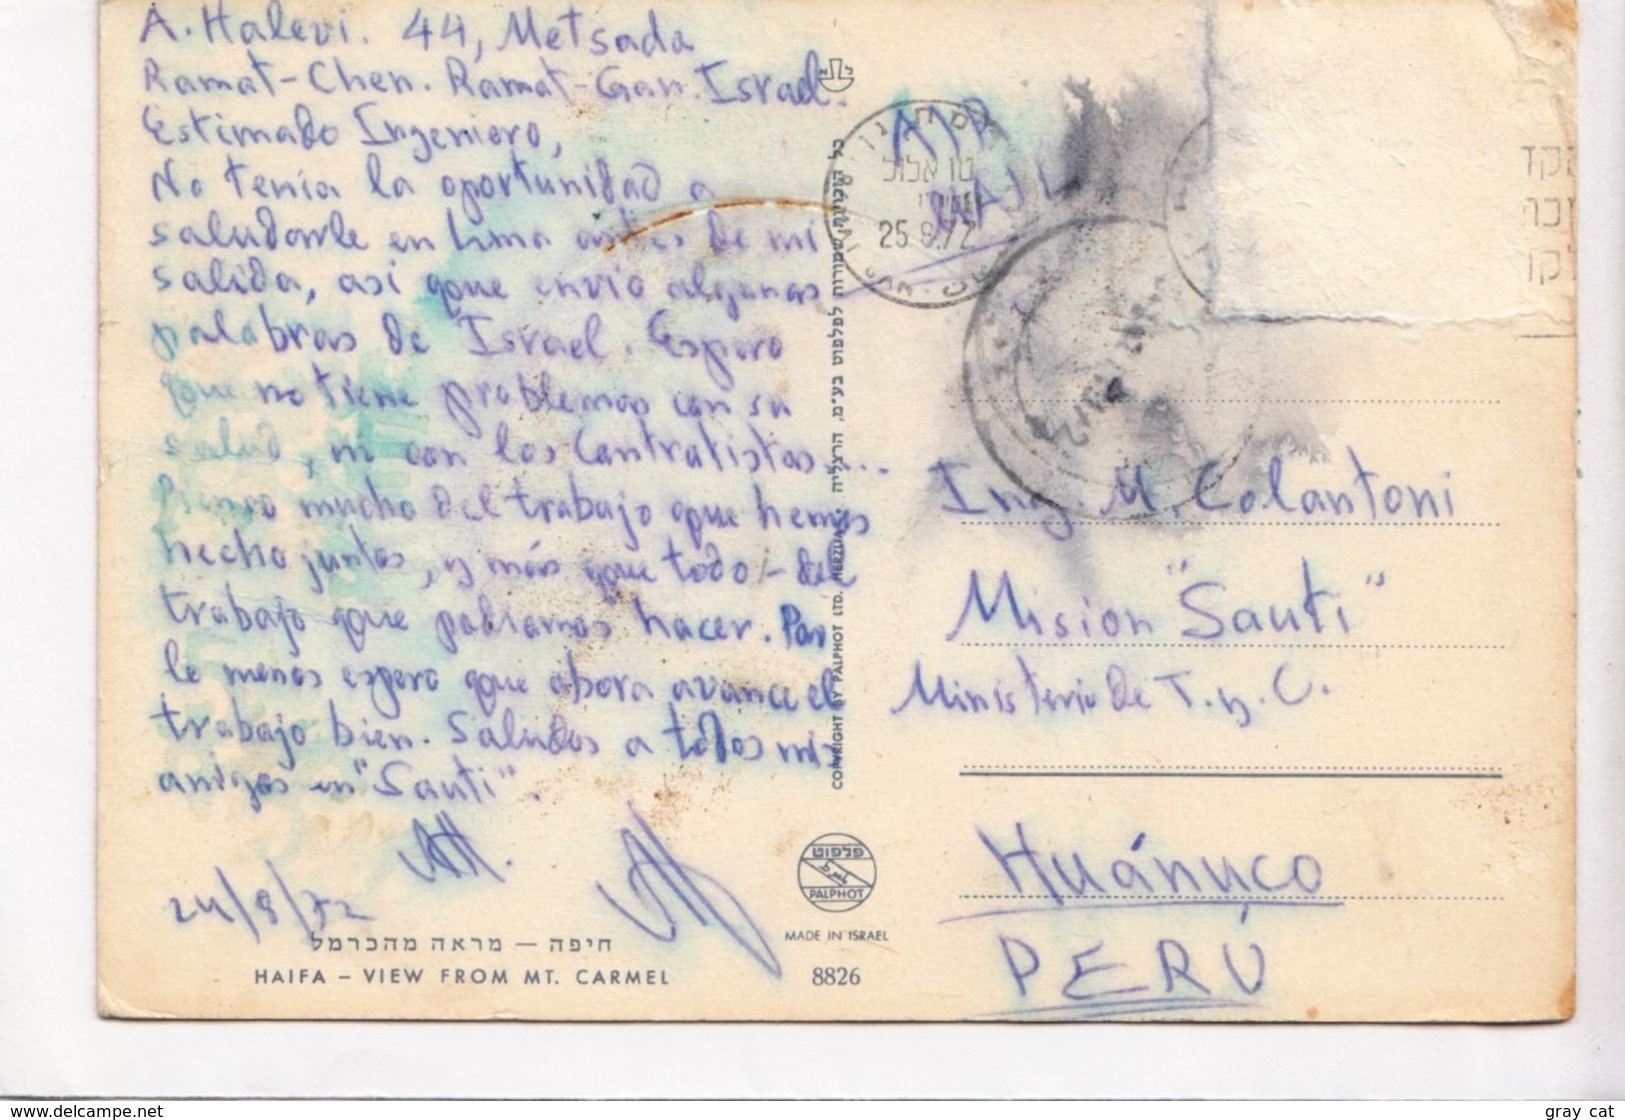 A. Halevi. 44, Metsada
Ramat-Chen. Ramat-Gan. Israel.
Estimado Ingeniero,
No tenia la oportunidad a
saludarle en Lima antes de mi
salida, asi que envio algunas
palabras de Israel. Espero
que no tiene problemas con su
salud, ni con los Contratistas....
Pienso mucho del trabajo que hemos
hecho juntos, y más que todo - del
trabajo que podriamos hacer. Por
lo menos espero que ahora avance el
trabajo bien. Saludos a todos mis
amigos en "Sauti".
24/8/72
חיפה – מראה מהכרמל
HAIFA – VIEW FROM MT. CARMEL
COPYRIGHT BY PALPHOT LTD. HERZLIA
כל הזכויות שמורות לפלפוט בע"מ, הרצליה
פלפוט
PALPHOT
MADE IN ISRAEL
8826
AIR
MAIL
טו אלול
25.8.72
Ing. M. Colantoni
Mision "Sauti"
Ministerio de T. y C.
Huánuco
PERÚ
www.delcampe.net
gray cat